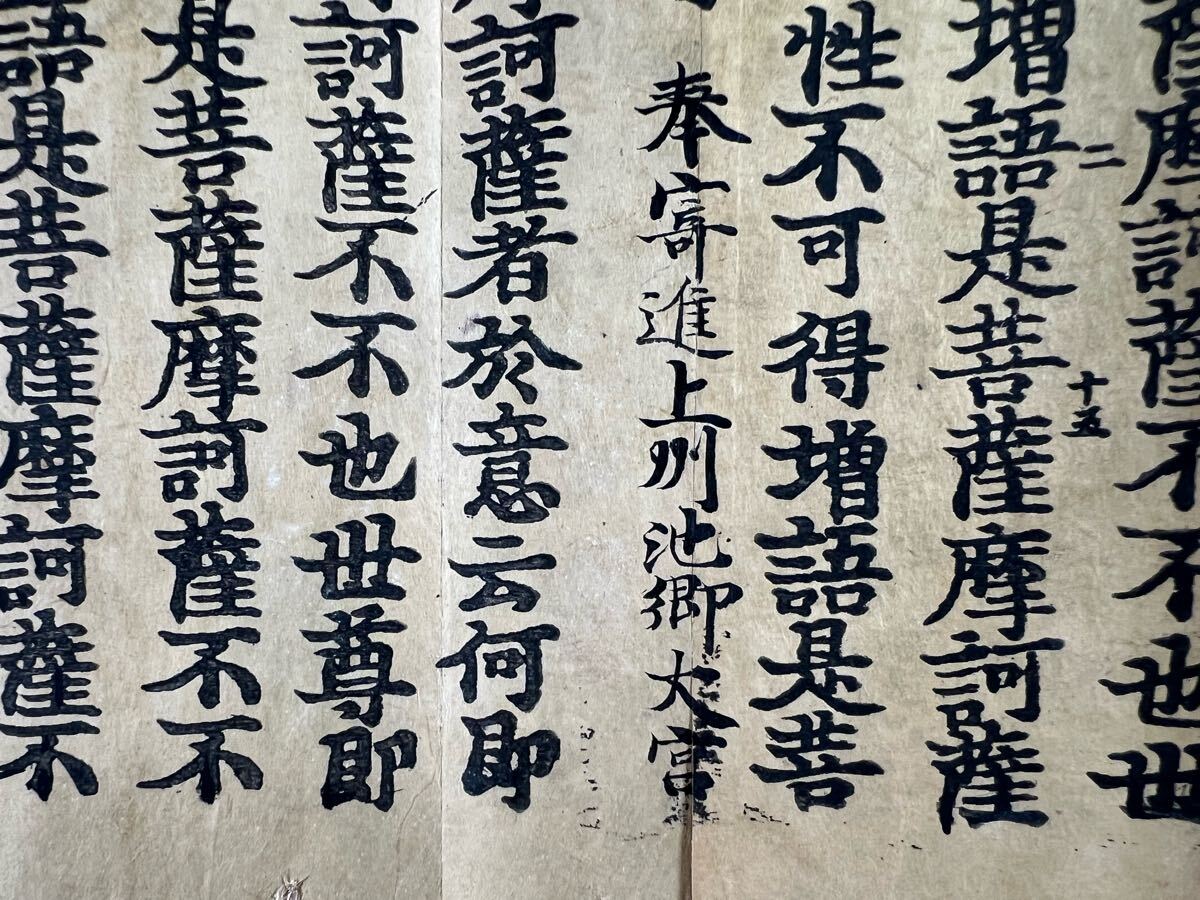 薩摩訶薩不不也世
增語是菩薩摩訶薩
二
十五
性不可得增語是菩
奉寄進上州池郷大宮
訶薩者於意云何即
訶薩不不也世尊即
是菩薩摩訶薩不不
語是菩薩摩訶薩不